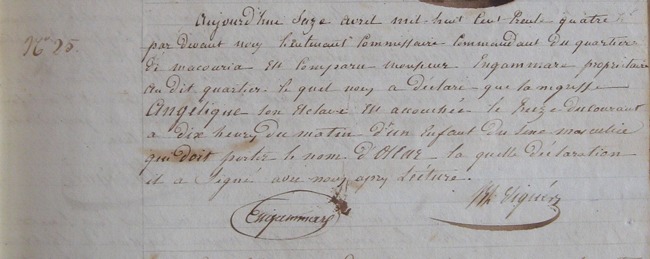 N° 25.
Aujourd'hui Seize avril mil huit Cent trente quatre
par devant nous lieutenant Commissaire Commandant du quartier
de macouria est Comparu monsieur Engammare propriétaire
au dit quartier le quel nous a déclaré que la négresse
Angelique son Esclave est accouchée le treize du courant
a dix heures du matin d'un Enfant du sexe masculin
qui doit porter le nom d'Oscar la quelle déclaration
il a Signé avec nous après Lecture.
Engammare